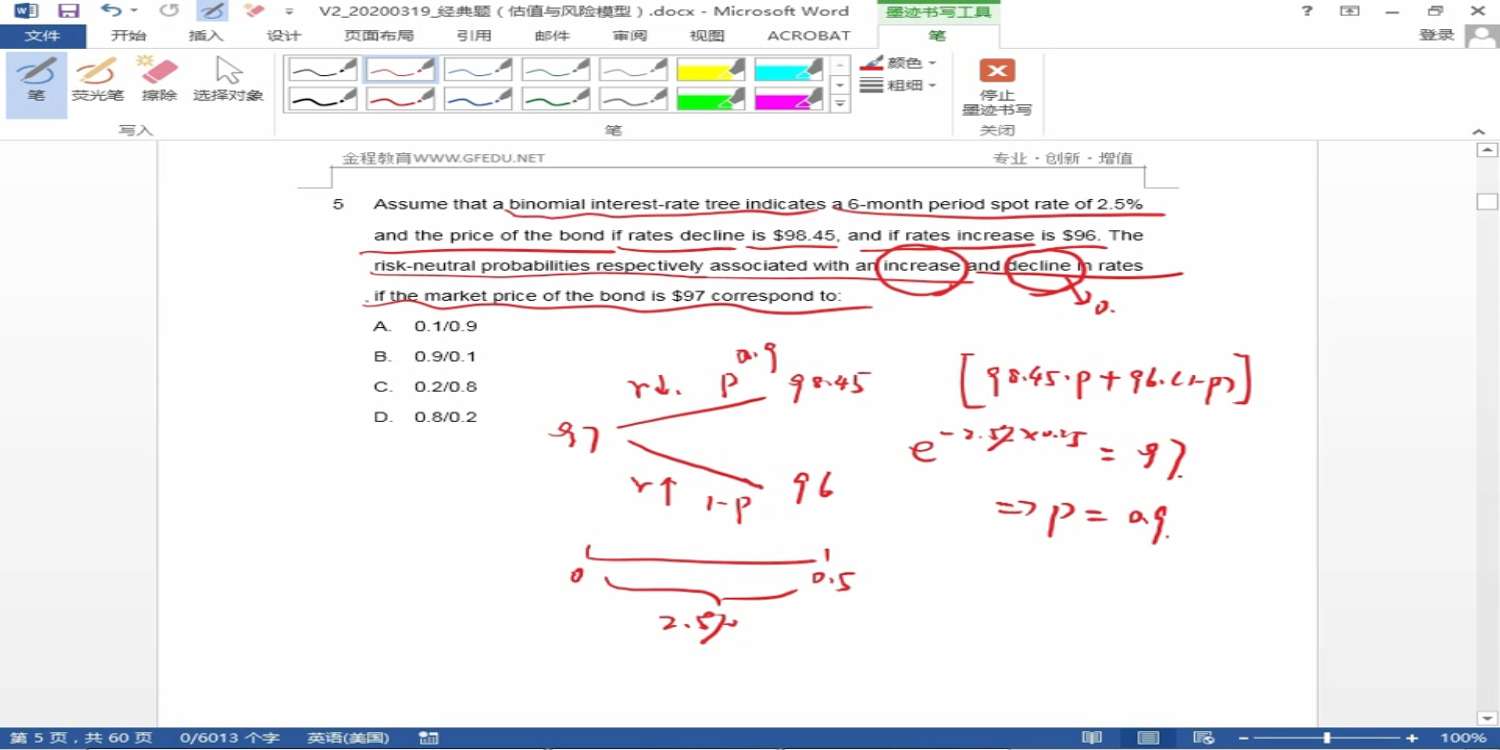 V2_20200319_经典题（估值与风险模型）.docx - Microsoft Word
墨迹书写工具
?
文件
开始
插入
设计
页面布局
引用
邮件
审阅
视图
ACROBAT
笔
登录
笔
荧光笔
擦除
选择对象
颜色
粗细
停止
墨迹书写
写入
笔
关闭
金程教育WWW.GFEDU.NET
专业·创新·增值
5 Assume that a binomial interest-rate tree indicates a 6-month period spot rate of 2.5%
and the price of the bond if rates decline is $98.45, and if rates increase is $96. The
risk-neutral probabilities respectively associated with an increase and decline in rates
if the market price of the bond is $97 correspond to:
0.
A. 0.1/0.9
B. 0.9/0.1
C. 0.2/0.8
D. 0.8/0.2
0.9
r↓. p 98.45
[98.45·p+96·(1-p)]
97
e^-2.5%×0.25 = 97
r↑ 1-p 96
=> p = 0.9
0 0.5
2.5%
第 5 页，共 60 页
0/6013 个字
英语(美国)
100%